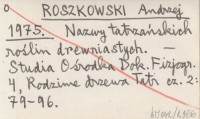 o ROSZKOWSKI Andrzej
1975. Nazwy tatrzańskich
roślin drewniastych. —
Studia Ośrodka Dok. Fizjogr.
4, Rodzime drzewa Tatr cz. 2:
79-96.